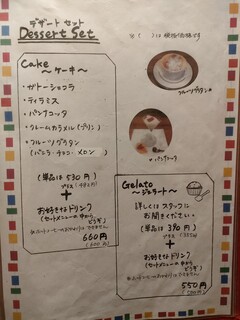 デザート セット
Dessert Set
※(　)は税抜価格です
Cake
～ケーキ～
・ガトーショコラ
・ティラミス
・パンナコッタ
・クレームカラメル(プリン)
・フルーツグラタン
(バニラ・チョコ・メロン)
フルーツグラタン
パンナコッタ
(単品は530円)
プラス
＋
お好きなドリンク
(セットメニューの中から
どうぞ)
660円
(600円)
Gelato
～ジェラート～
詳しくはスタッフに
お聞きください。
(単品は390円)
プラス
＋
お好きなドリンク
(セットメニューの中から
どうぞ)
550円
(500円)